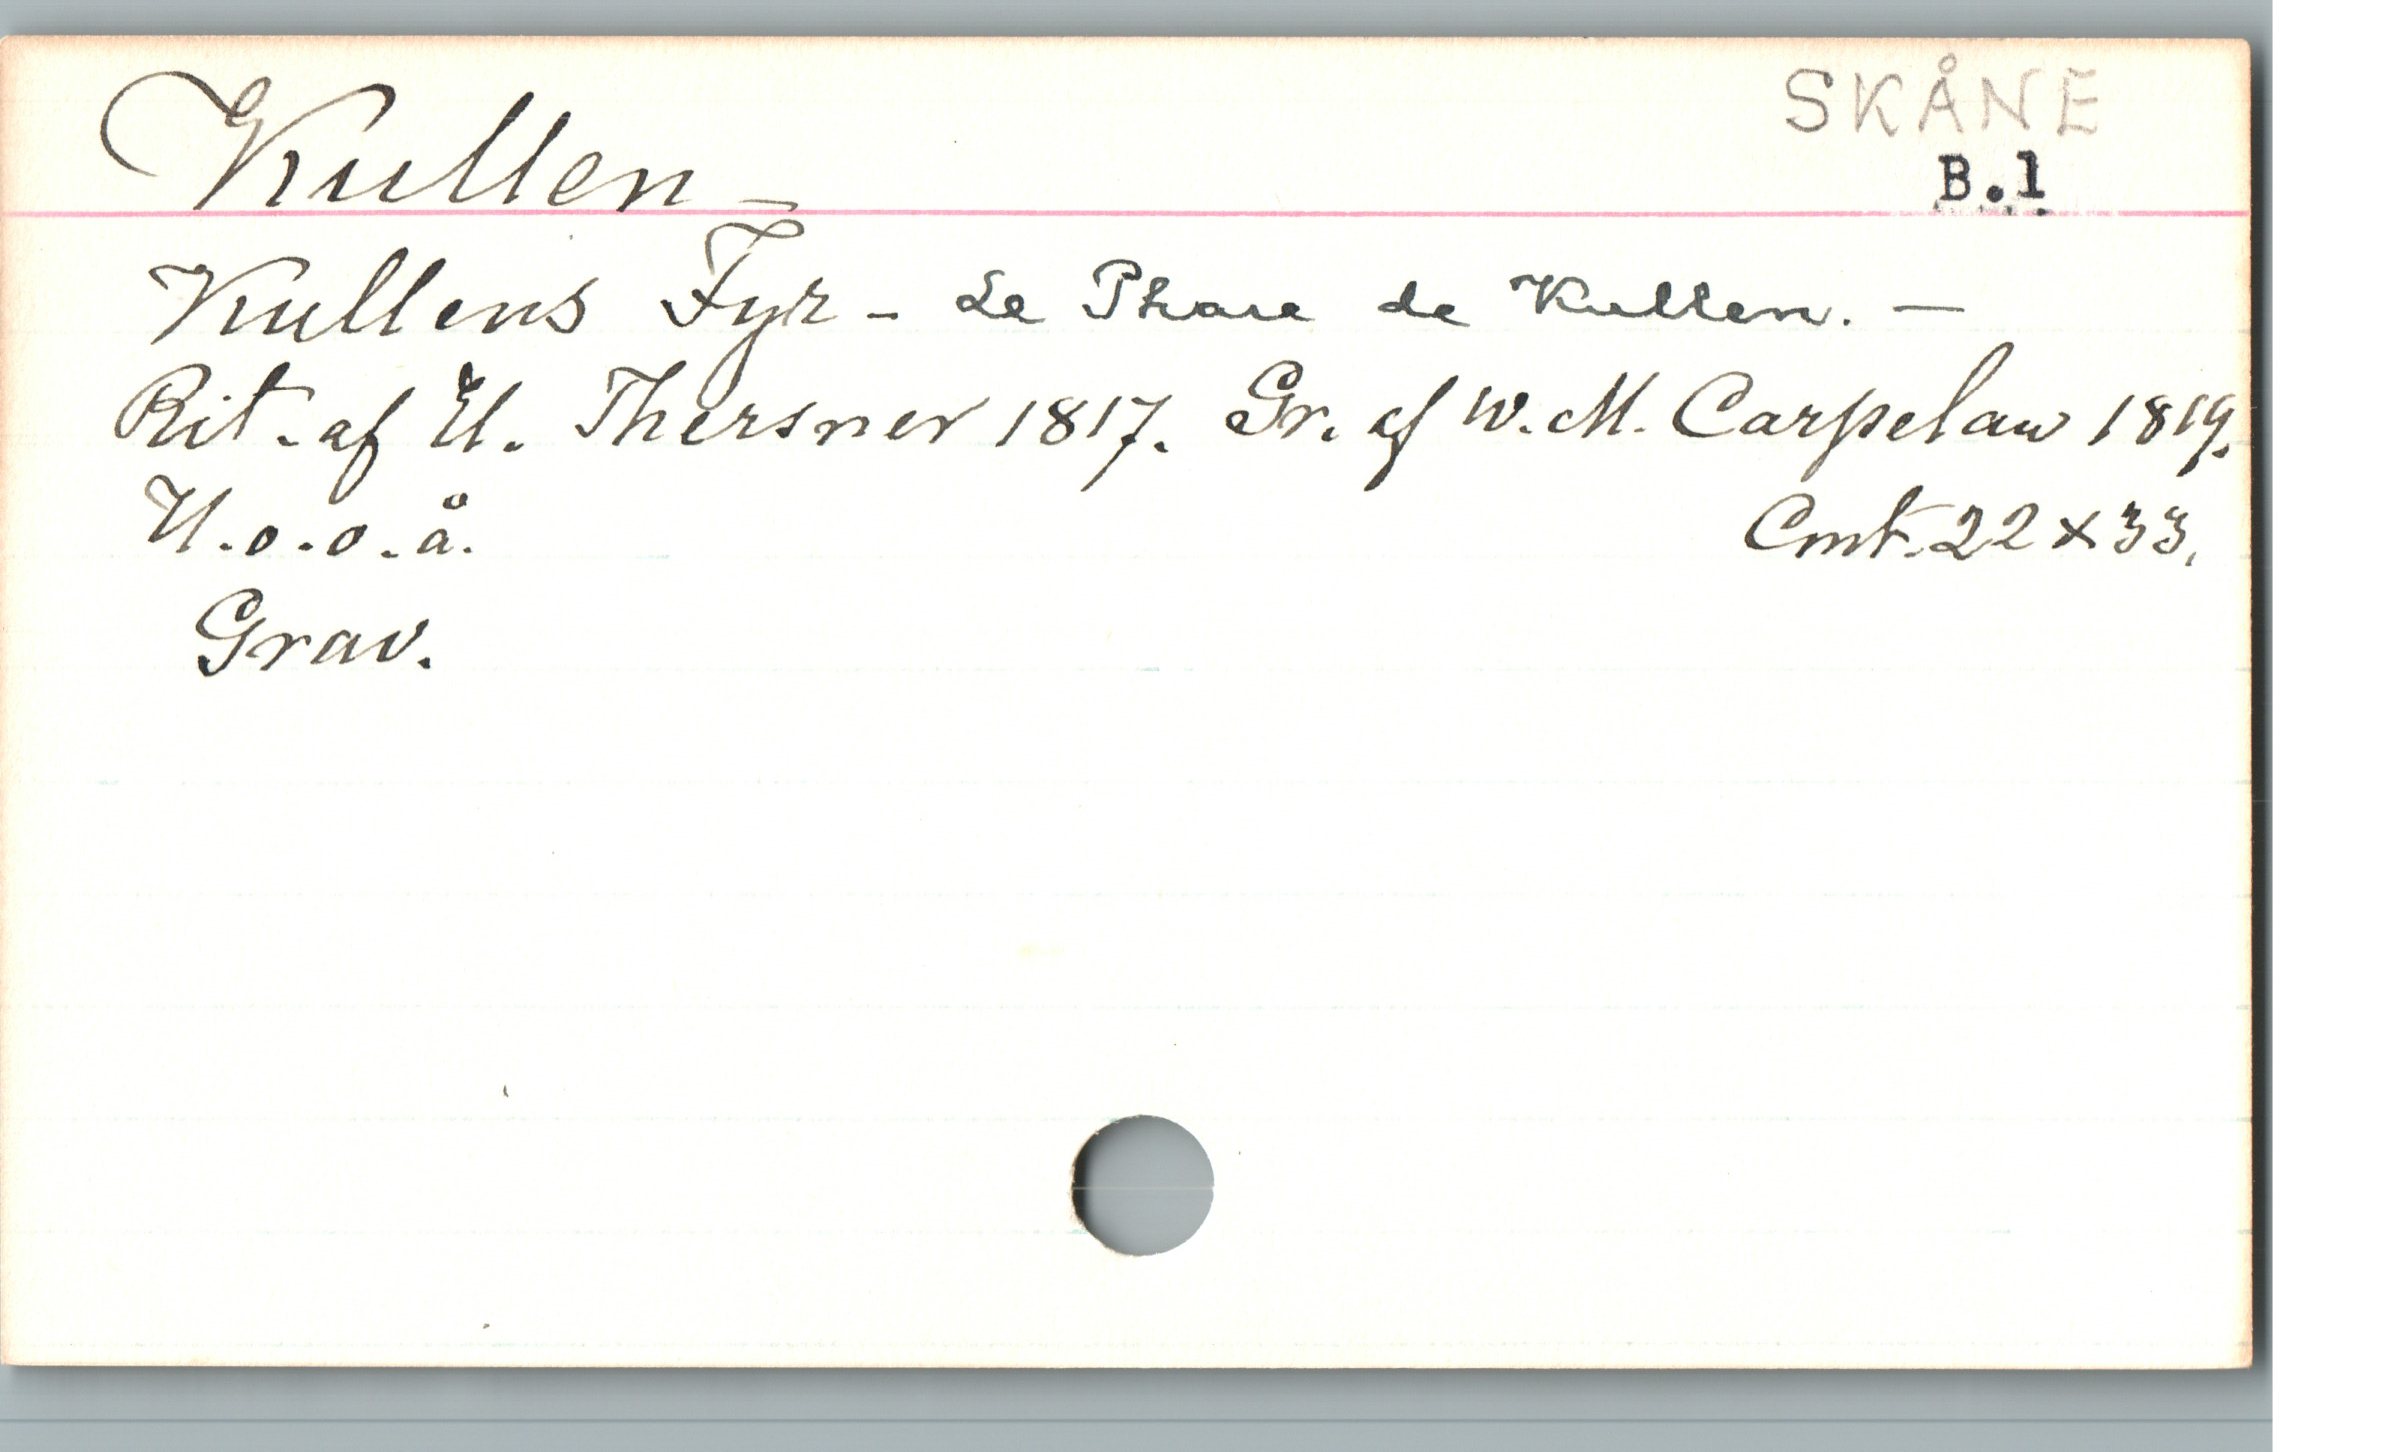 Kullen – SKÅNE
B.1
Kullens Fyr – Le Phare de Kullen. –
Rit. af U. Thersner 1817. Gr. af W. M. Carpelan 1819.
U.o.o.å. Cmt. 22 x 33.
Grav.